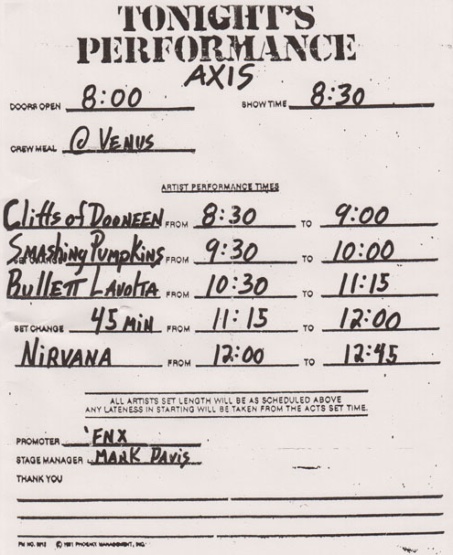 TONIGHT'S
PERFORMANCE
AXIS
DOORS OPEN 8:00 SHOW TIME 8:30
CREW MEAL @ VENUS
ARTIST PERFORMANCE TIMES
Cliffs of DOONEEN FROM 8:30 TO 9:00
Smashing Pumpkins FROM 9:30 TO 10:00
Bullett Lavolta FROM 10:30 TO 11:15
SET CHANGE 45 MIN FROM 11:15 TO 12:00
NIRVANA FROM 12:00 TO 12:45
ALL ARTISTS SET LENGTH WILL BE AS SCHEDULED ABOVE
ANY LATENESS IN STARTING WILL BE TAKEN FROM THE ACTS SET TIME.
PROMOTER 'FNX
STAGE MANAGER MARK DAVIS
THANK YOU
© 1991 PHOENIX MANAGEMENT, INC.